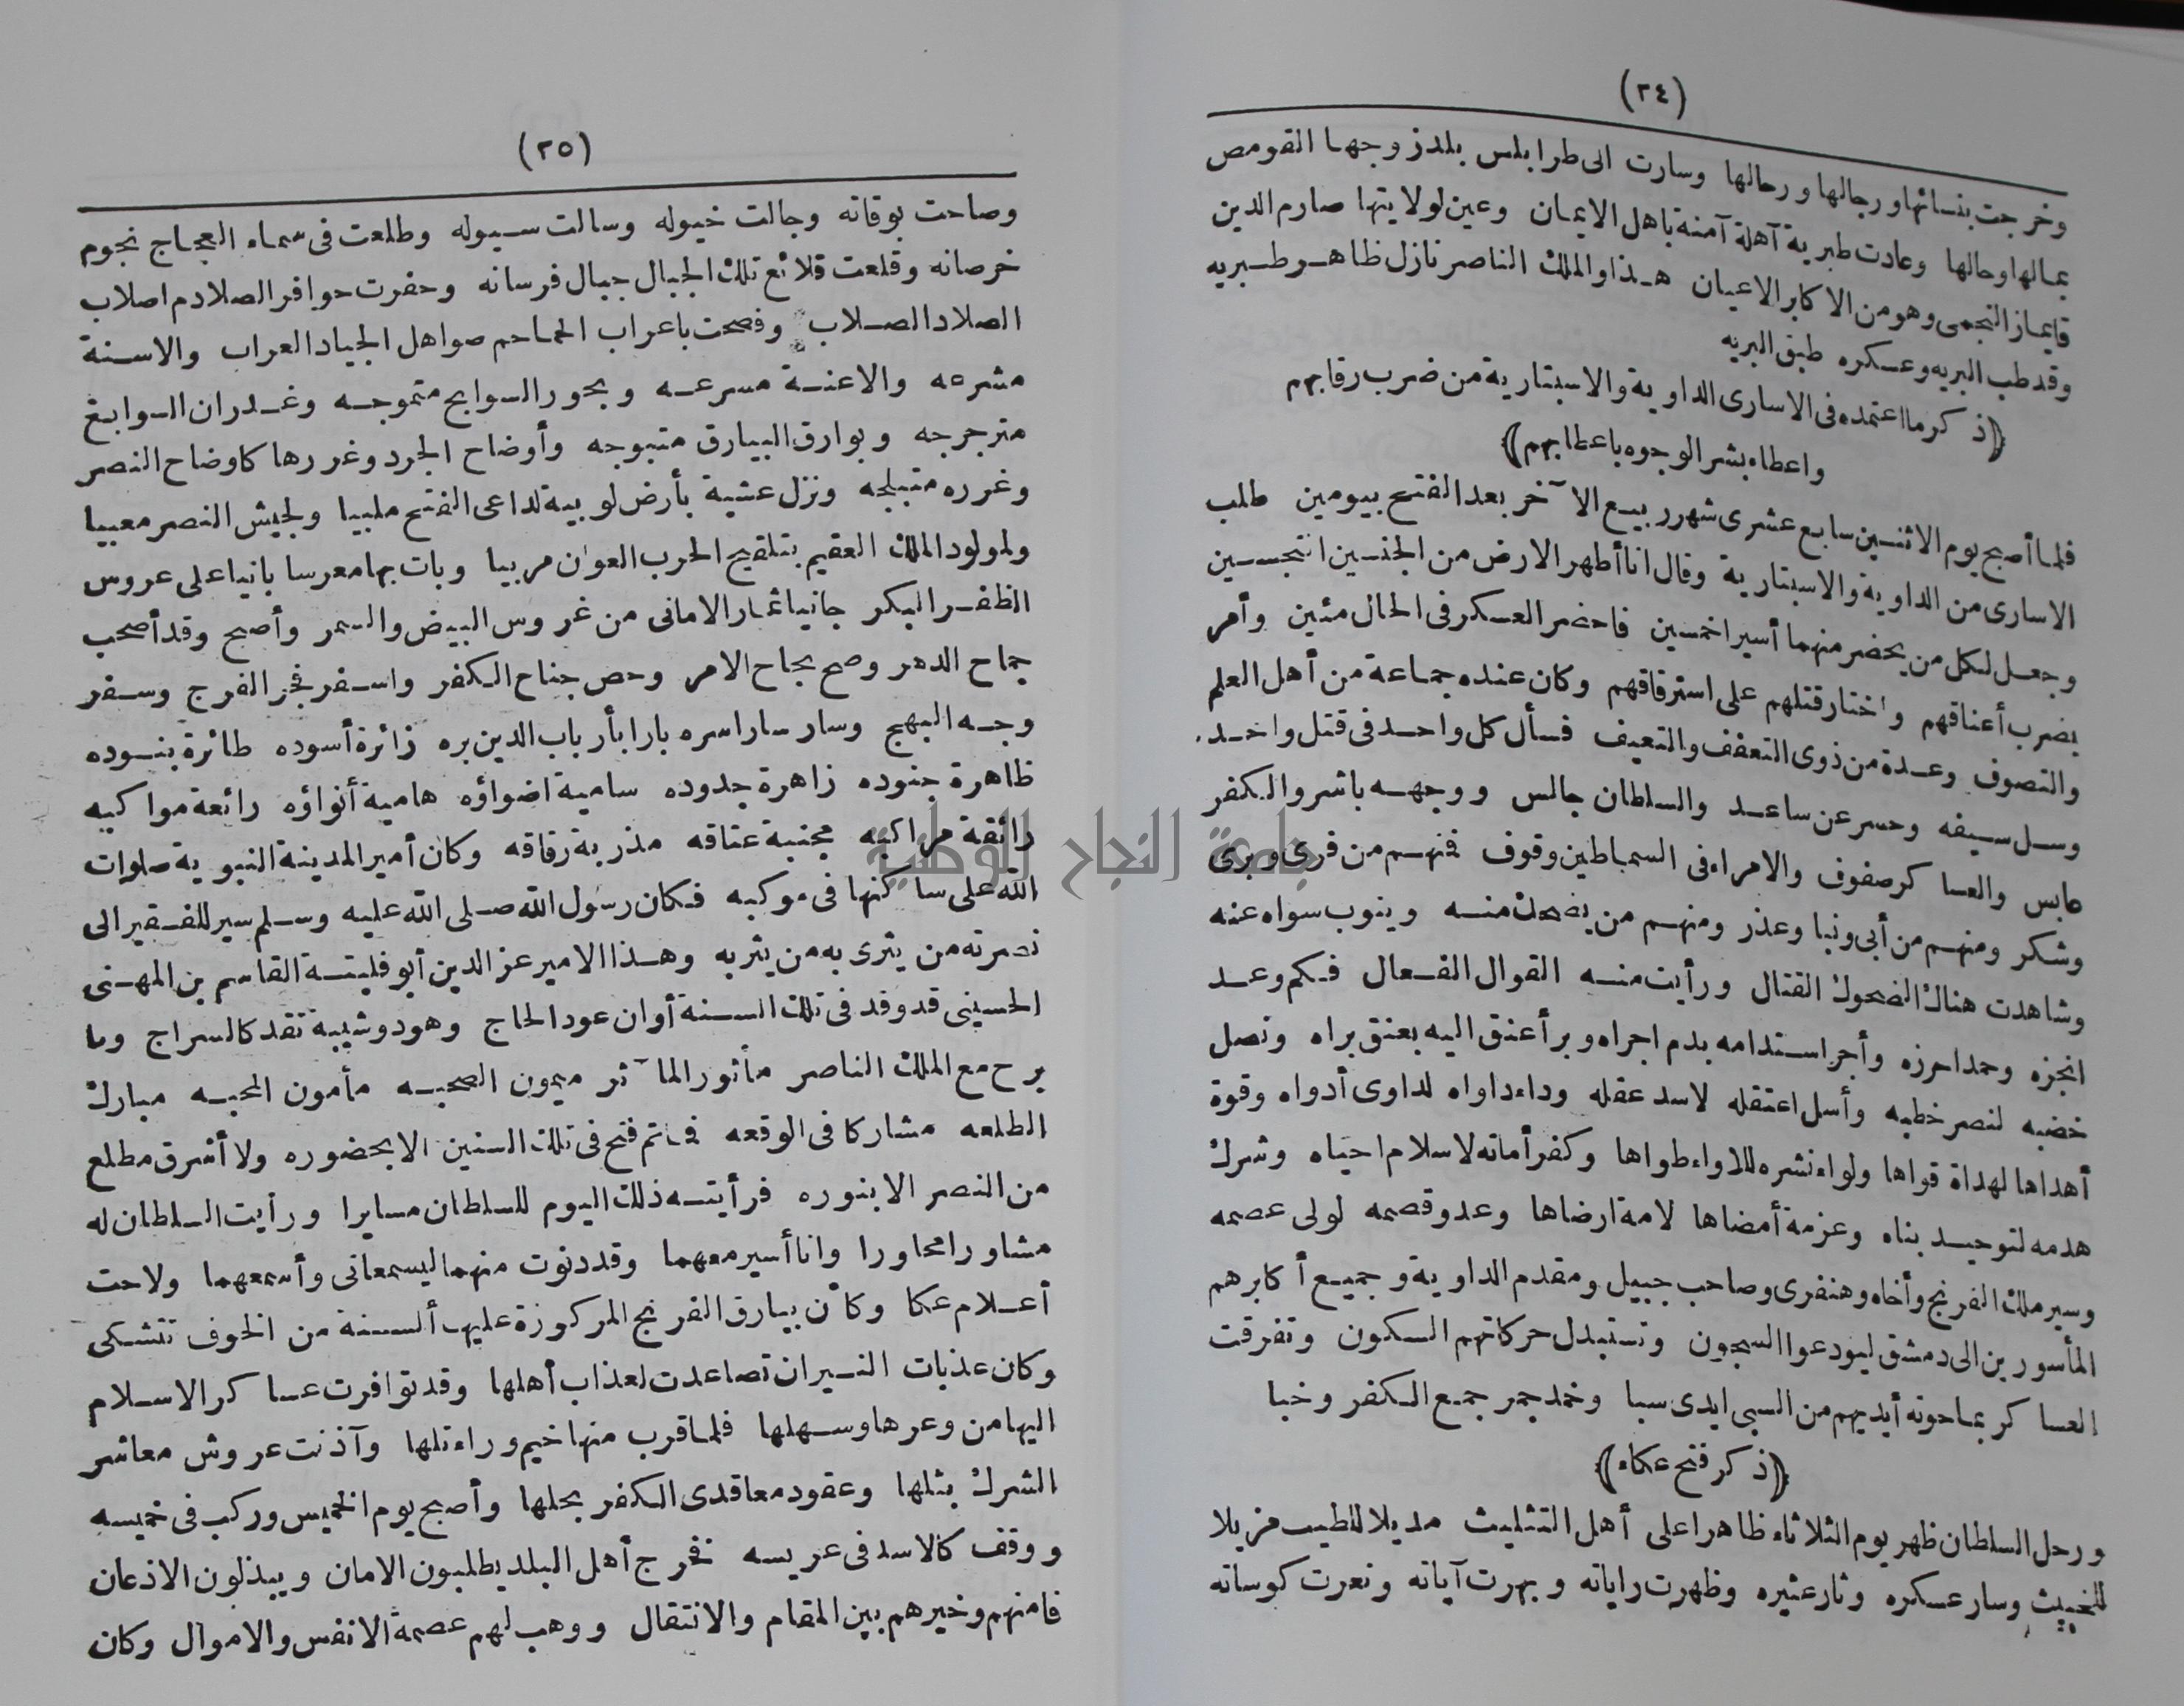 (٢٤)
وخرجت بنسائها ورجالها ورحالها وسارت الى طرابلس بلد زوجها القومص
بمالها وحالها وعادت طبرية آهلة آمنة باهل الايمان وعين لولايتها صارم الدين
قايماز النجمى وهو من الاكابر الاعيان هذا والملك الناصر نازل ظاهر طبريه
وقد طب البريه وعسكره طبق البريه
(ذكر ما اعتمده فى الاسارى الداوية والاسبتارية من ضرب رقابهم
واعطاء بشر الوجوه باعطابهم)
فلما أصبح يوم الاثنين سابع عشرى شهر ربيع الآخر بعد الفتح بيومين طلب
الاسارى من الداوية والاسبتارية وقال انا أطهر الارض من الجنسين النجسين
وجعل لكل من يحضر منهما أسيرا خمسين فاحضر العسكر فى الحال مئين وأمر
بضرب أعناقهم واختار قتلهم على استرقاقهم وكان عنده جماعة من أهل العلم
والتصوف وعدة من ذوى التعفف والتعيف فسأل كل واحد فى قتل واحد
وسل سيفه وحسر عن ساعد والسلطان جالس ووجهه باشر والكفر
عابس والعساكر صفوف والامراء فى السماطين وقوف فمنهم من فرى وبرى
وشكر ومنهم من أبى ونبا وعذر ومنهم من يضحك منه وينوب سواه عنه
وشاهدت هناك الضحوك القتال ورأيت منه القوال الفعال فكم وعد
انجزه وحمد احرزه وأجر استدامه بدم اجراه وبر أعنق اليه بعنق براه ونصل
خضبه لنصر خطبه وأسل اعتقله لاسد عقله وداء داواه لداوى أدواه وقوة
أهداها لهداة قواها ولواء نشره للاواء طواها وكفر أماته لاسلام احياه وشرك
هدمه لتوحيد بناه وعزمة أمضاها لامة ارضاها وعدو قصمه لولى عصمه
وسير ملك الفرنج وأخاه وهنفرى وصاحب جبيل ومقدم الداوية وجميع أكابرهم
المأسورين الى دمشق ليودعوا السجون وتستبدل حركاتهم السكون وتفرقت
العساكر بما حوته أيديهم من السبى ايدى سبا وخمد جمر جمع الكفر وخبا
(ذكر فتح عكاء)
ورحل السلطان ظهر يوم الثلاثاء ظاهرا على أهل التثليث مديلا للطيب مزيلا
للخبيث وسار عسكره وثار عثيره وظهرت راياته وبهرت آياته ونعرت كوساته
(٢٥)
وصاحت بوقاته وجالت خيوله وسالت سيوله وطلعت فى سماء العجاج نجوم
خرصانه وقلعت قلائع تلك الجبال جبال فرسانه وحفرت حوافر الصلادم اصلاب
الصلاد الصلاب وفصحت باعراب الحماحم صواهل الجياد العراب والاسنة
مشرعه والاعنة مسرعه وبحور السوابح متموجه وغدران السوابغ
مترجرجه وبوارق البيارق متبوجه وأوضاح الجرد وغررها كاوضاح النصر
وغرره متبلجه ونزل عشية بأرض لوبية لداعى الفتح ملبيا ولجيش النصر معبيا
ولمولود الملك العقيم بتلقيح الحرب العوان مربيا وبات بها معرسا بانيا على عروس
الظفر البكر جانيا ثمار الامانى من غروس البيض والسمر وأصبح وقد أصحب
جماح الدهر وصح نجاح الامر وحص جناح الكفر واسفر فجر الفرج وسفر
وجه البهج وسار سارا سره بارا بأرباب الدين بره زائرة أسوده طائرة بنوده
ظاهرة جنوده زاهرة جدوده سامية اضواؤه هامية أنواؤه رائعة مواكبه
رائقة مراكبه مجنبة عتاقه مذربة رقاقه وكان أمير المدينة النبوية صلوات
الله على ساكنها فى موكبه فكان رسول الله صلى الله عليه وسلم سير للفقير الى
نصرته من يثرى به من يثربه وهذا الامير عز الدين أبو فليتة القاسم بن المهنى
الحسينى قد وفد فى تلك السنة أوان عود الحاج وهو ذو شيبة تقد كالسراج وما
برح مع الملك الناصر مأثور المآثر ميمون الصحبه مأمون المحبه مبارك
الطلعه مشاركا فى الوقعه فما تم فتح فى تلك السنين الا بحضوره ولا أشرق مطلع
من النصر الا بنوره فرأيته ذلك اليوم للسلطان مسايرا ورأيت السلطان له
مشاورا محاورا وانا أسير معهما وقد دنوت منهما ليسمعانى وأسمعهما ولاحت
أعلام عكا وكأن بيارق الفرنج المركوزة عليها ألسنة من الخوف تتشكى
وكان عذبات النيران تصاعدت لعذاب أهلها وقد توافرت عساكر الاسلام
اليها من وعرها وسهلها فلما قرب منها خيم وراء تلها وآذنت عروش معاشر
الشرك بثلها وعقود معاقدى الكفر بحلها وأصبح يوم الخميس وركب فى خميسه
ووقف كالاسد فى عريسه فخرج أهل البلد يطلبون الامان ويبذلون الاذعان
فامنهم وخيرهم بين المقام والانتقال ووهب لهم عصمة الانفس والاموال وكان
جامعة النجاح الوطنية